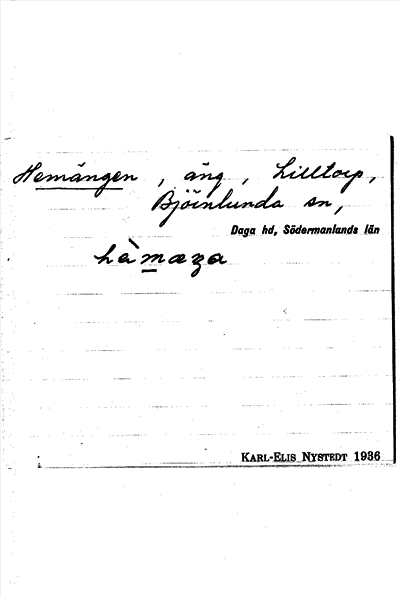 Hemängen, äng, Lilltorp,
Björnlunda sn,
Daga hd, Södermanlands län
KARL-ELIS NYSTEDT 1936